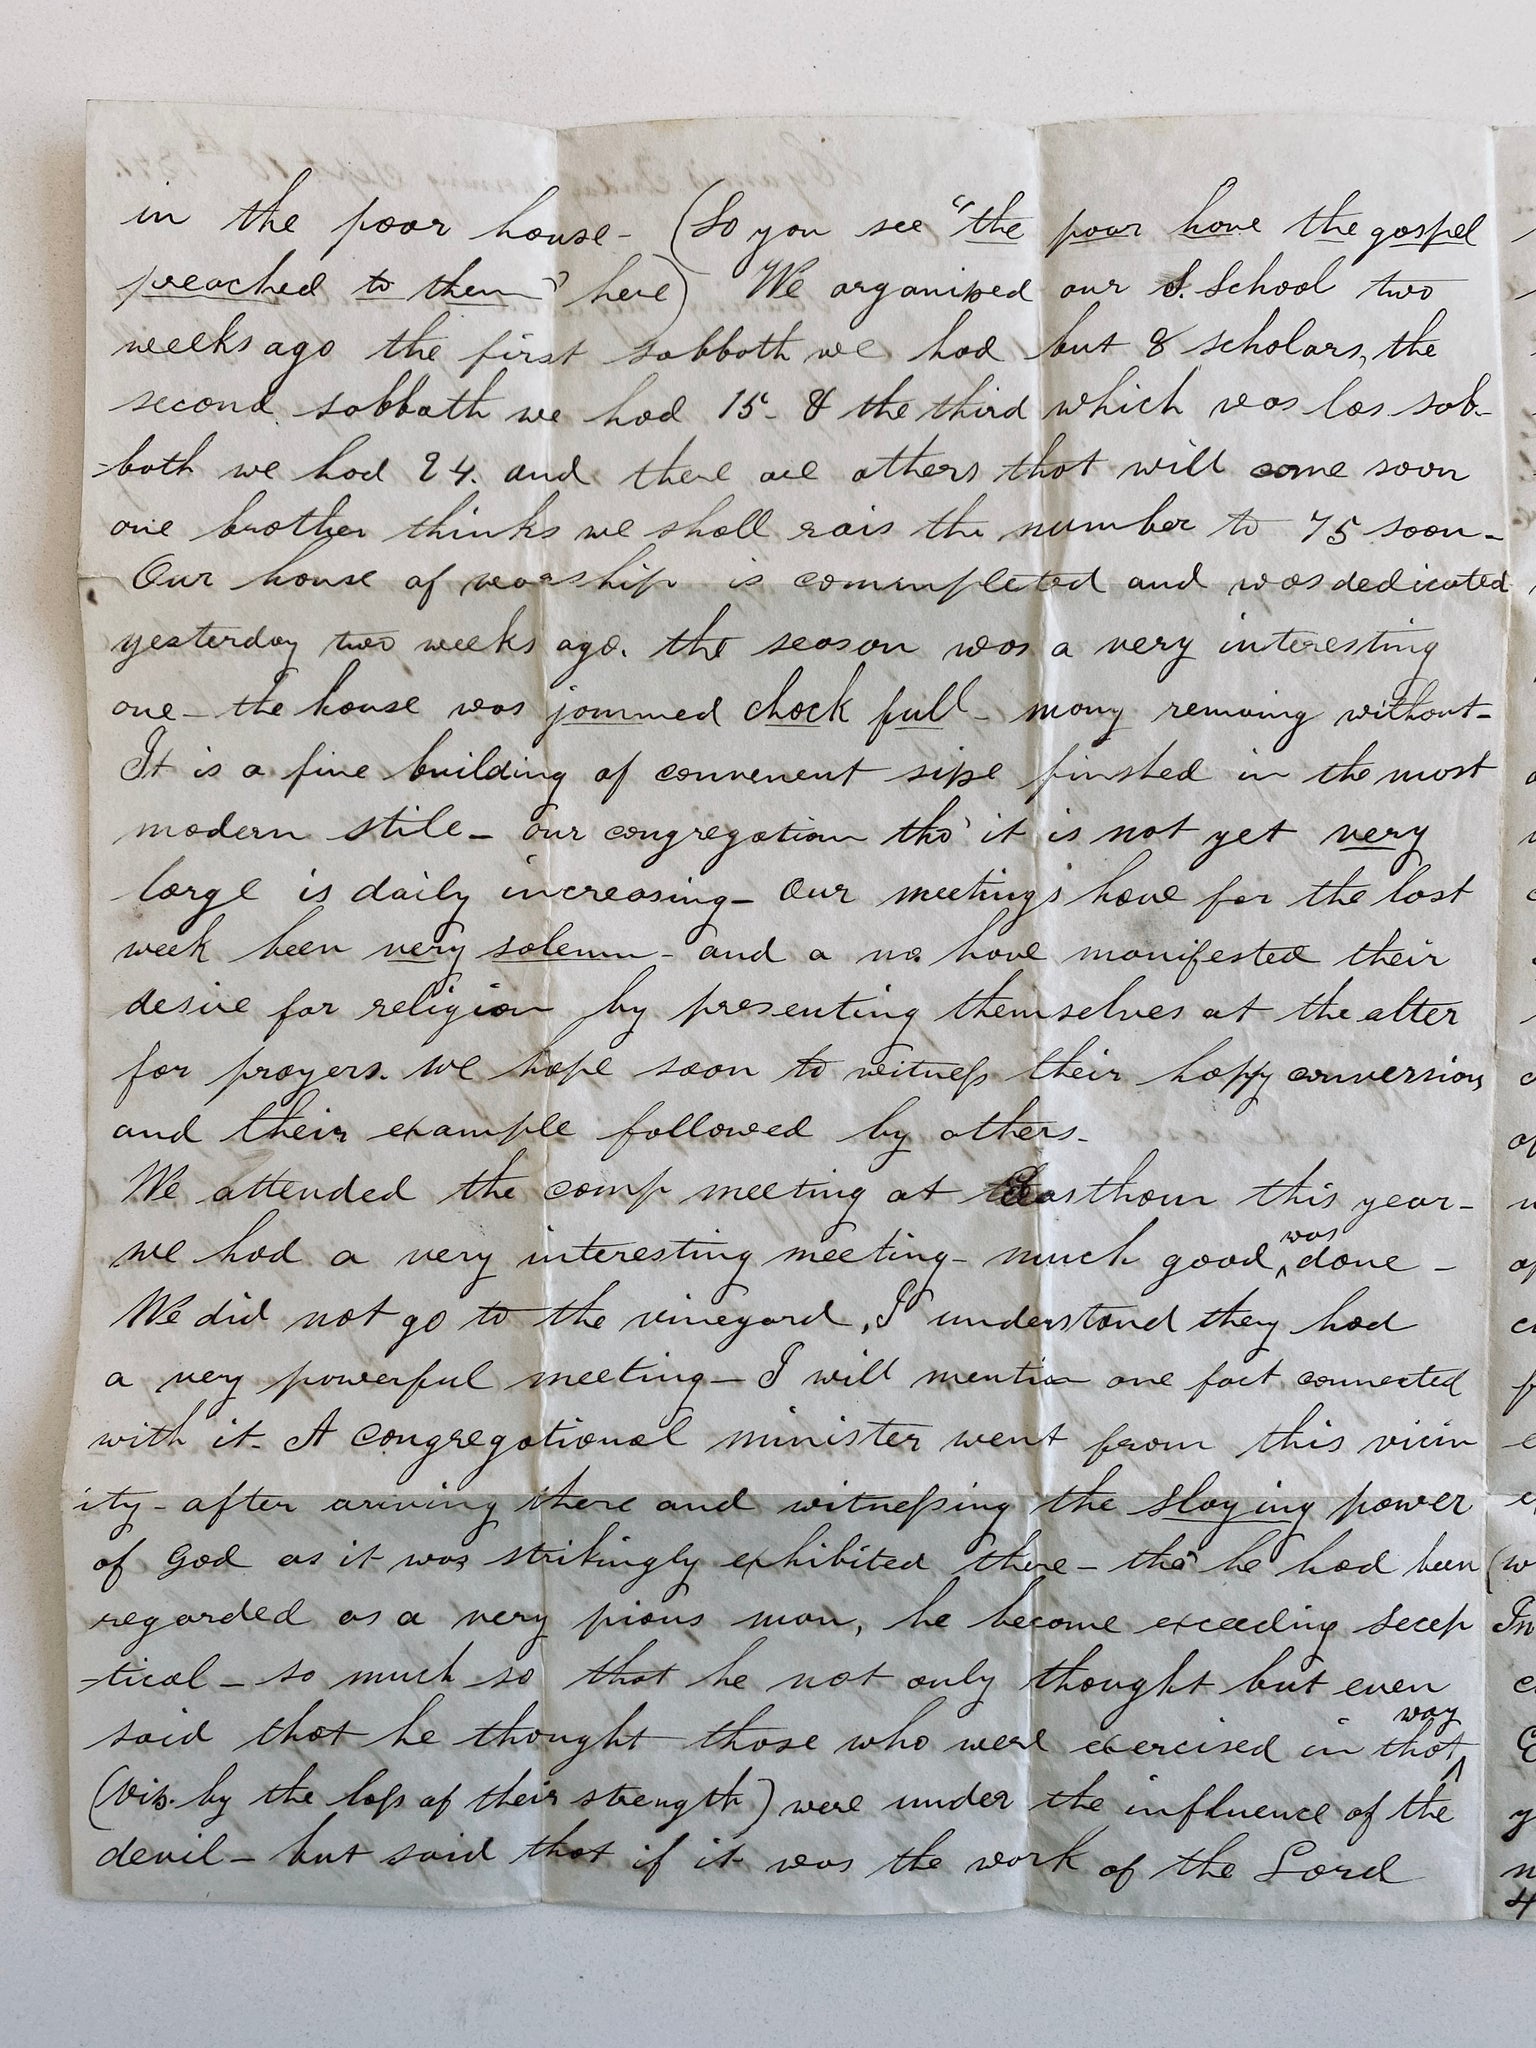 in the poor house - (So you see "the poor have the gospel
preached to them" here) We organized our S. School two
weeks ago the first sabbath we had but 8 scholars, the
second sabbath we had 15 - & the third which was las sab-
-bath we had 24. and there are others that will come soon
one brother thinks we shall rais the number to 75 soon -
Our house of worship is commpleted and was dedicated
yesterday two weeks ago. the season was a very interesting
one - the house was jammed chock full - many remaing without -
It is a fine building of convenent size finshed in the most
modern stile - our congregation tho' it is not yet very
large is daily increasing - Our meetings have for the last
week been very solemn - and a no. have manifested their
desire for religion by presenting themselves at the alter
for prayers. we hope soon to witness their happy conversion
and their example followed by others -
We attended the camp meeting at Easthom this year -
we had a very interesting meeting - much good was done -
We did not go to the vineyard, I understand they had
a very powerful meeting - I will mention one fact connected
with it - A congregational minister went from this vicin
ity - after ariving there and witnessing the slaying power
of God as it was strikingly exhibited there - tho' he had been
regarded as a very pious man, he became exceeding scep
-tical - so much so that he not only thought but even
said that he thought those who were exercised in that way
(viz. by the loss of their strength) were under the influence of the
devil - but said that if it was the work of the Lord